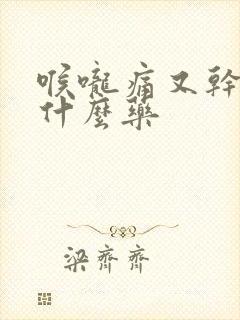 喉嚨痛又幹
什麼藥
梁齊齊